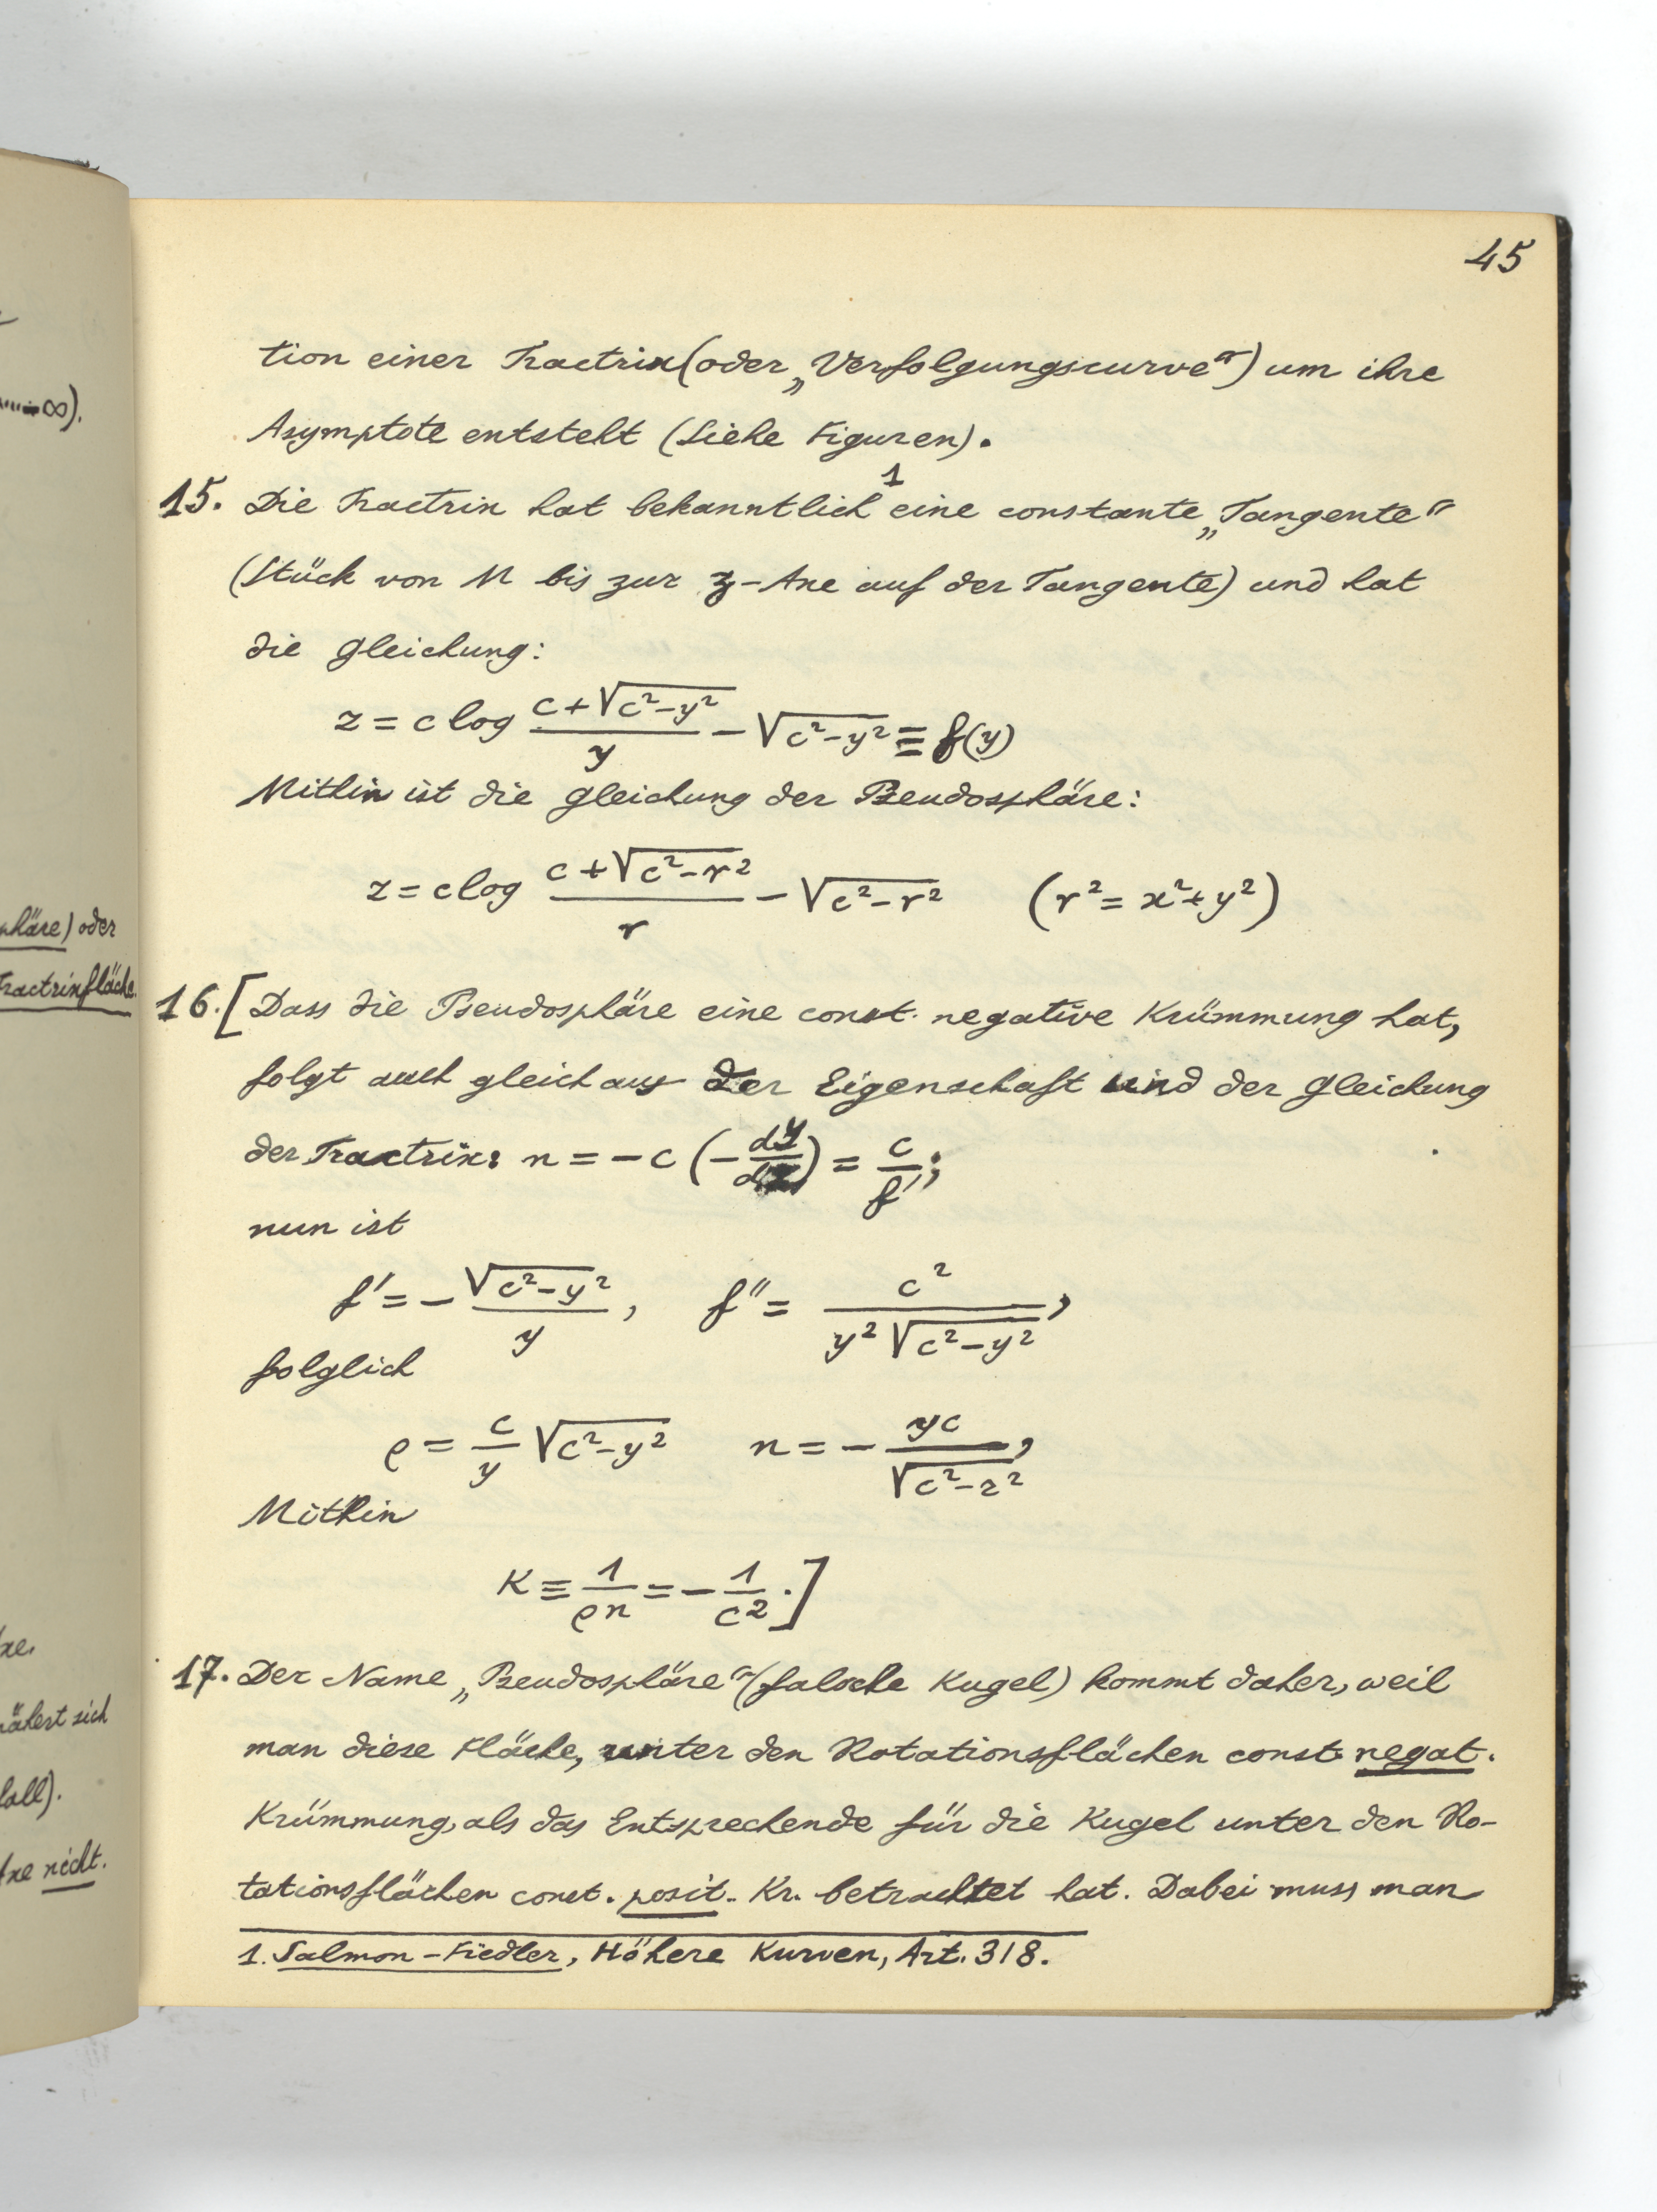 45
tion einer Tractrix (oder „Verfolgungscurve") um ihre
Asymptote entsteht (Siehe Figuren).
15. Die Tractrix hat bekanntlich¹ eine constante „Tangente"
(Stück von M bis zur z-Axe auf der Tangente) und hat
die Gleichung:
z = c log (c+√(c²-y²))/y - √(c²-y²) ≡ f(y)
Mithin ist die Gleichung der Pseudosphäre:
z = c log (c+√(c²-r²))/r - √(c²-r²) (r² = x²+y²)
16. [Dass die Pseudosphäre eine const. negative Krümmung hat,
folgt auch gleich aus der Eigenschaft und der Gleichung
der Tractrix: n = -c (-dy/dz) = c/f';
nun ist
f' = -√(c²-y²)/y, f'' = c²/(y²√(c²-y²)),
folglich
ρ = c/y √(c²-y²) n = -yc/√(c²-z²),
Mithin
K ≡ 1/ρn = -1/c².]
17. Der Name „Pseudosphäre" (falsche Kugel) kommt daher, weil
man diese Fläche, unter den Rotationsflächen const. negat.
Krümmung, als das Entsprechende für die Kugel unter den Ro-
tationsflächen const. posit. Kr. betrachtet hat. Dabei muss man
1. Salmon-Fiedler, Höhere Kurven, Art. 318.
∞).
phäre) oder
Tractrixfläche.
xe.
nähert sich
fall).
Axe nicht.